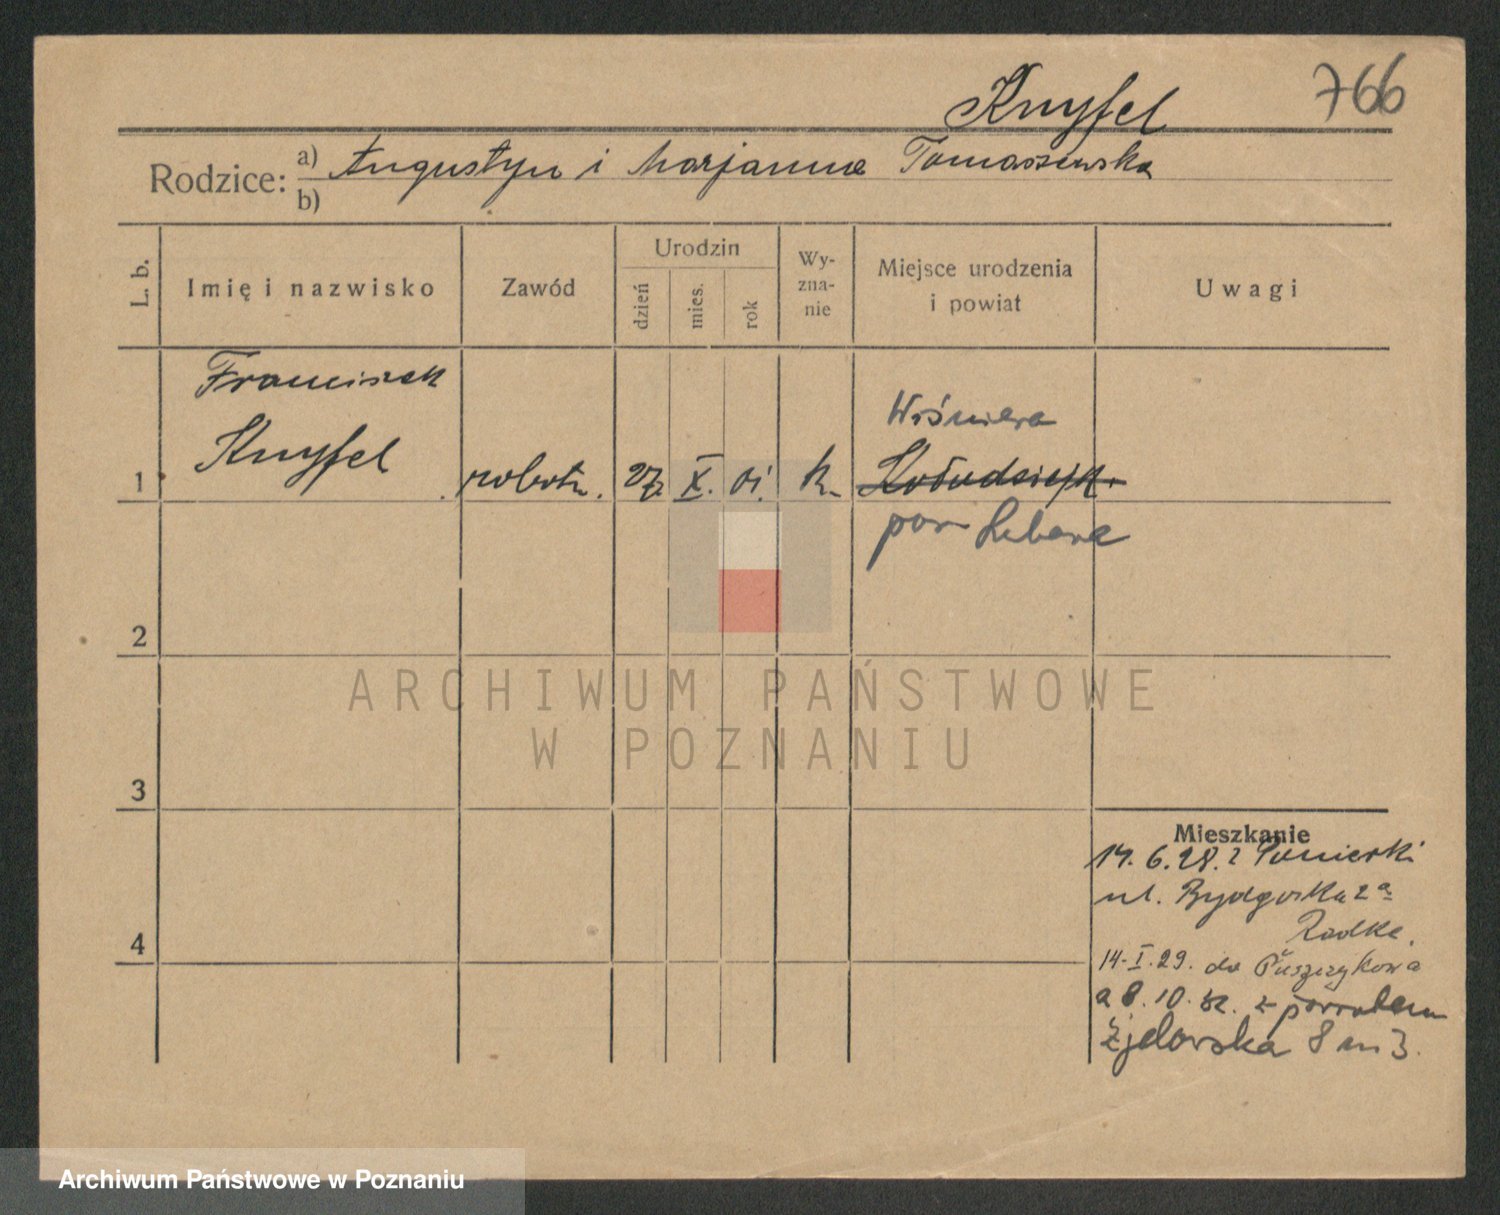 Knyfel 766
Rodzice: a) Augustyn i Marjanna Tomaszewska
b)
L. b. Imię i nazwisko Zawód Urodzin dzień mies. rok Wy-zna-nie Miejsce urodzenia i powiat Uwagi
Franciszek
Wiśniewa
1 Knyfel robotn. 27. X. 01. k.
pow
2
ARCHIWUM PAŃSTWOWE
W POZNANIU
3
Mieszkanie
14. 6. 28. z Poniecki
ul. Bydgoska 2a
Radke.
4
14-I.29. do Puszczykowa
a 8.10. z powrotem
8 m 3.
Archiwum Państwowe w Poznaniu